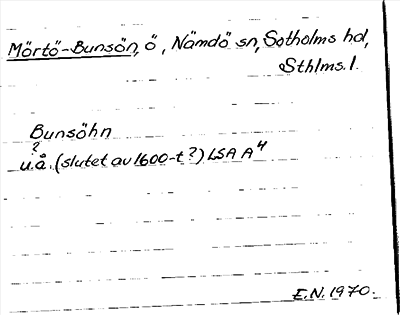 Mörtö-Bunsön, ö, Nämdö sn, Sotholms hd,
Sthlms. l.
Bunsöhn
?
u.å. (slutet av 1600-t?) LSA A4
E.N. 1970.